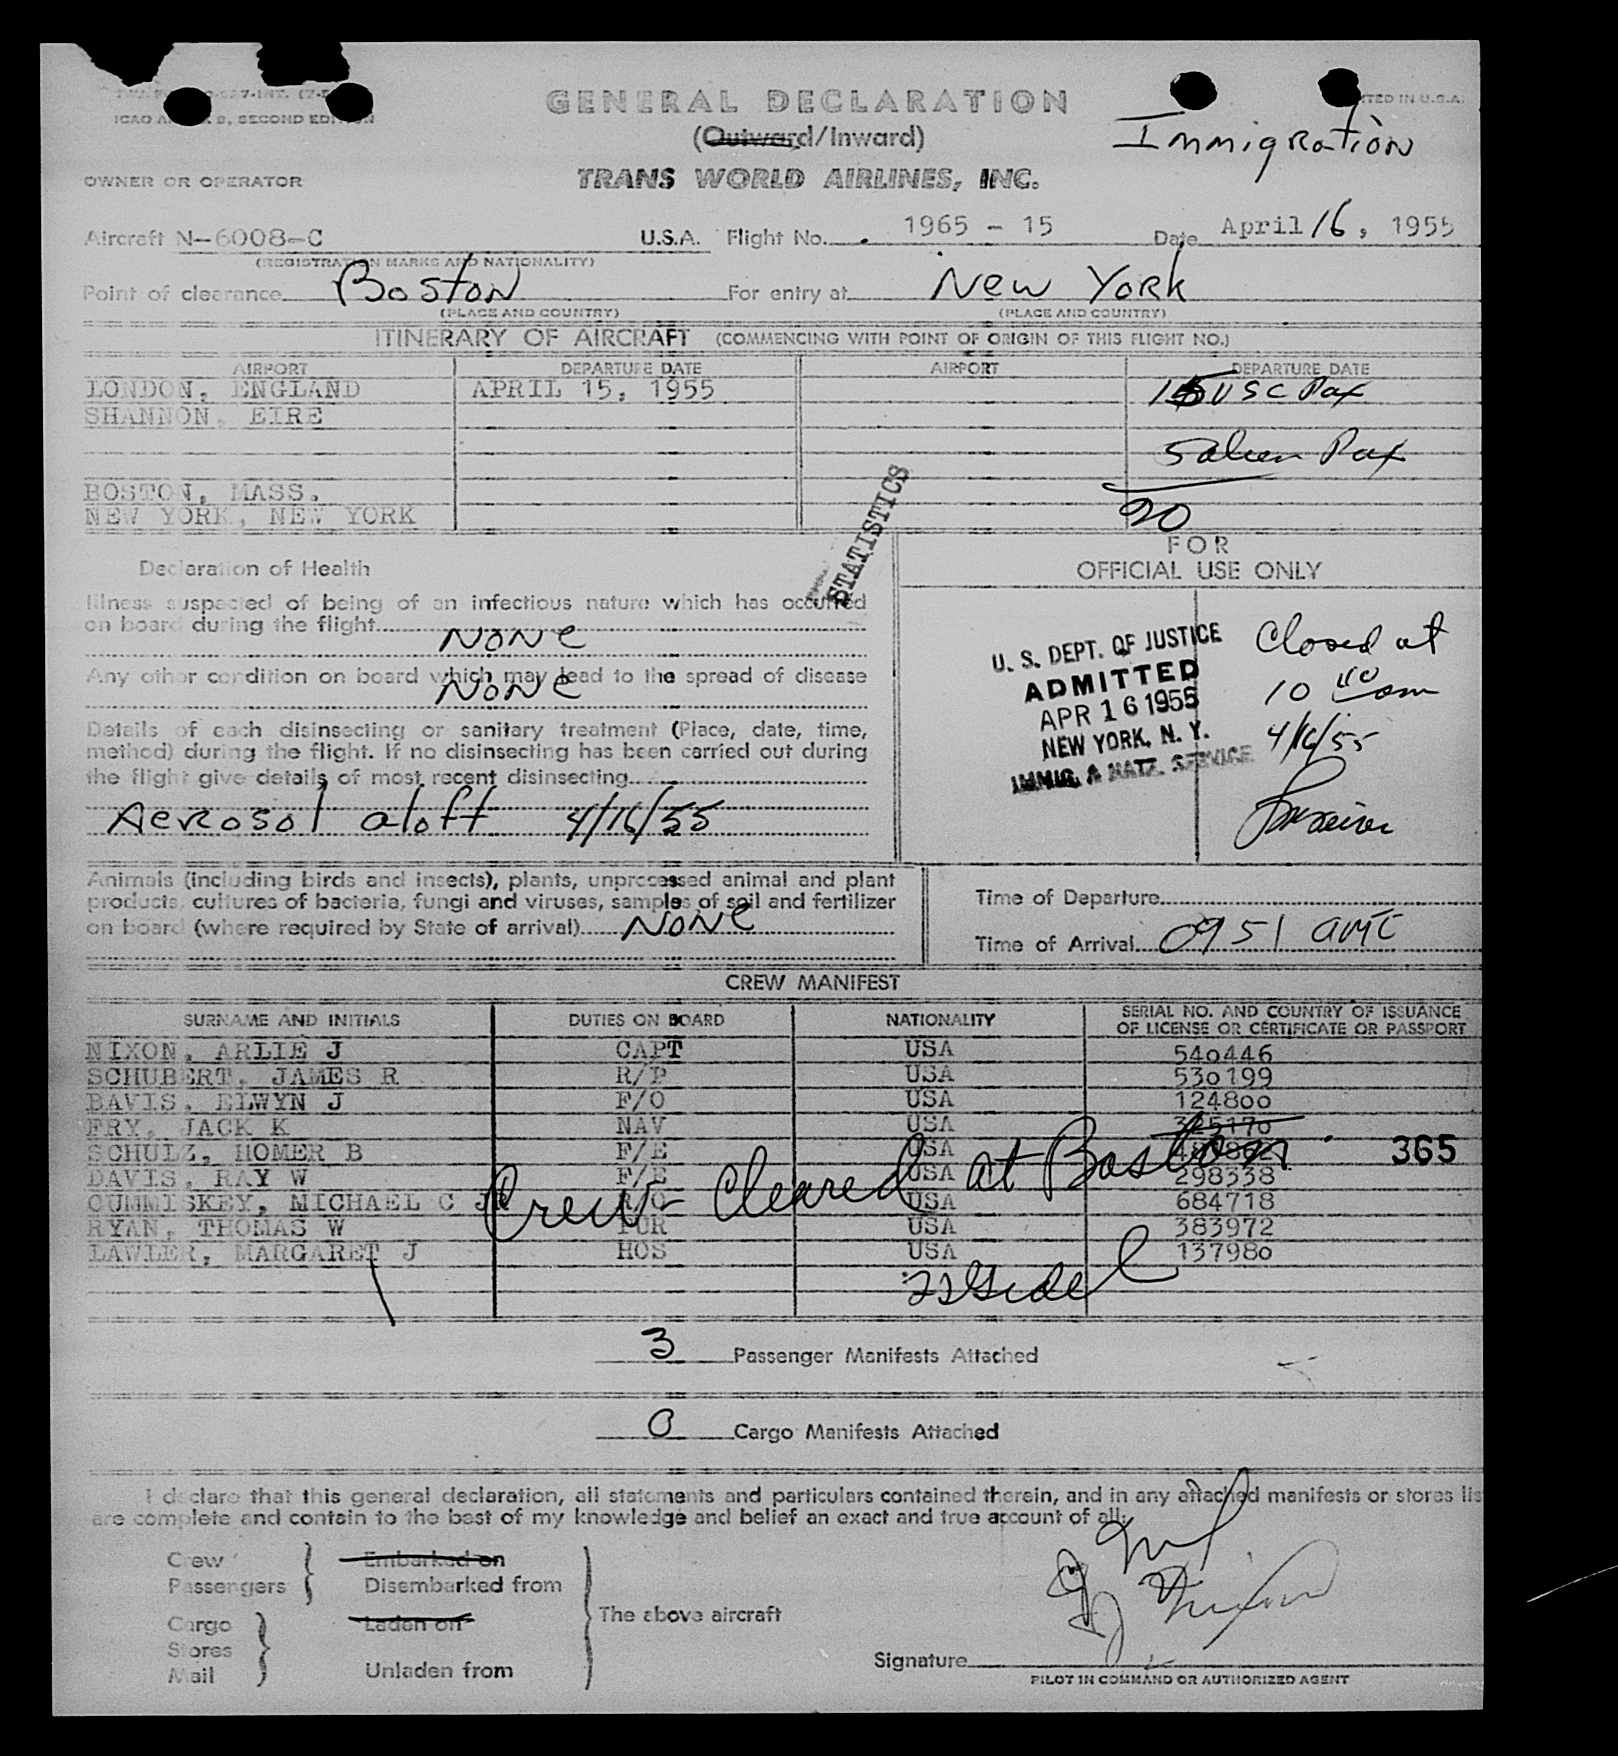 ICAO
SECOND EDITION
GENERAL DECLARATION
(Outward/Inward)
IN U.S.A.
Immigration
OWNER OR OPERATOR
TRANS WORLD AIRLINES, INC.
Aircraft N-6008-C U.S.A. Flight No. 1965 - 15 Date April 16, 1955
(REGISTRATION MARKS AND NATIONALITY)
Point of clearance Boston For entry at New York
(PLACE AND COUNTRY) (PLACE AND COUNTRY)
ITINERARY OF AIRCRAFT (COMMENCING WITH POINT OF ORIGIN OF THIS FLIGHT NO.)
AIRPORT DEPARTURE DATE AIRPORT DEPARTURE DATE
LONDON, ENGLAND APRIL 15, 1955 15 USC Pax
SHANNON, EIRE
5 alien Pax
BOSTON, MASS.
NEW YORK, NEW YORK 20
STATISTICS
FOR
OFFICIAL USE ONLY
Declaration of Health
Illness suspected of being of an infectious nature which has occurred
on board during the flight
None
Any other condition on board which may lead to the spread of disease
None
Details of each disinsecting or sanitary treatment (Place, date, time,
method) during the flight. If no disinsecting has been carried out during
the flight give details of most recent disinsecting
Aerosol aloft 4/16/55
U. S. DEPT. OF JUSTICE
ADMITTED
APR 16 1955
NEW YORK, N. Y.
IMMIG. & NATZ. SERVICE
Closed at
10 am
4/16/55
Animals (including birds and insects), plants, unprocessed animal and plant
products, cultures of bacteria, fungi and viruses, samples of soil and fertilizer
on board (where required by State of arrival) None
Time of Departure
Time of Arrival 0951 GMT
CREW MANIFEST
SURNAME AND INITIALS DUTIES ON BOARD NATIONALITY SERIAL NO. AND COUNTRY OF ISSUANCE
OF LICENSE OR CERTIFICATE OR PASSPORT
NIXON, ARLIE J CAPT USA 540446
SCHUBERT, JAMES R R/P USA 530199
BAVIS, ELWYN J F/O USA 124800
FRY, JACK K NAV USA 325170
SCHULZ, HOMER B F/E USA
365
DAVIS, RAY W F/E USA 298338
CUMMISKEY, MICHAEL C JR R/O USA 684718
RYAN, THOMAS W PUR USA 383972
LAWLER, MARGARET J HOS USA 137980
Crew - Cleared at Boston
3 Passenger Manifests Attached
0 Cargo Manifests Attached
I declare that this general declaration, all statements and particulars contained therein, and in any attached manifests or stores lis
are complete and contain to the best of my knowledge and belief an exact and true account of all:
Crew Embarked on
Passengers Disembarked from
The above aircraft
Cargo Laden on
Stores
Mail Unladen from
Signature
PILOT IN COMMAND OR AUTHORIZED AGENT